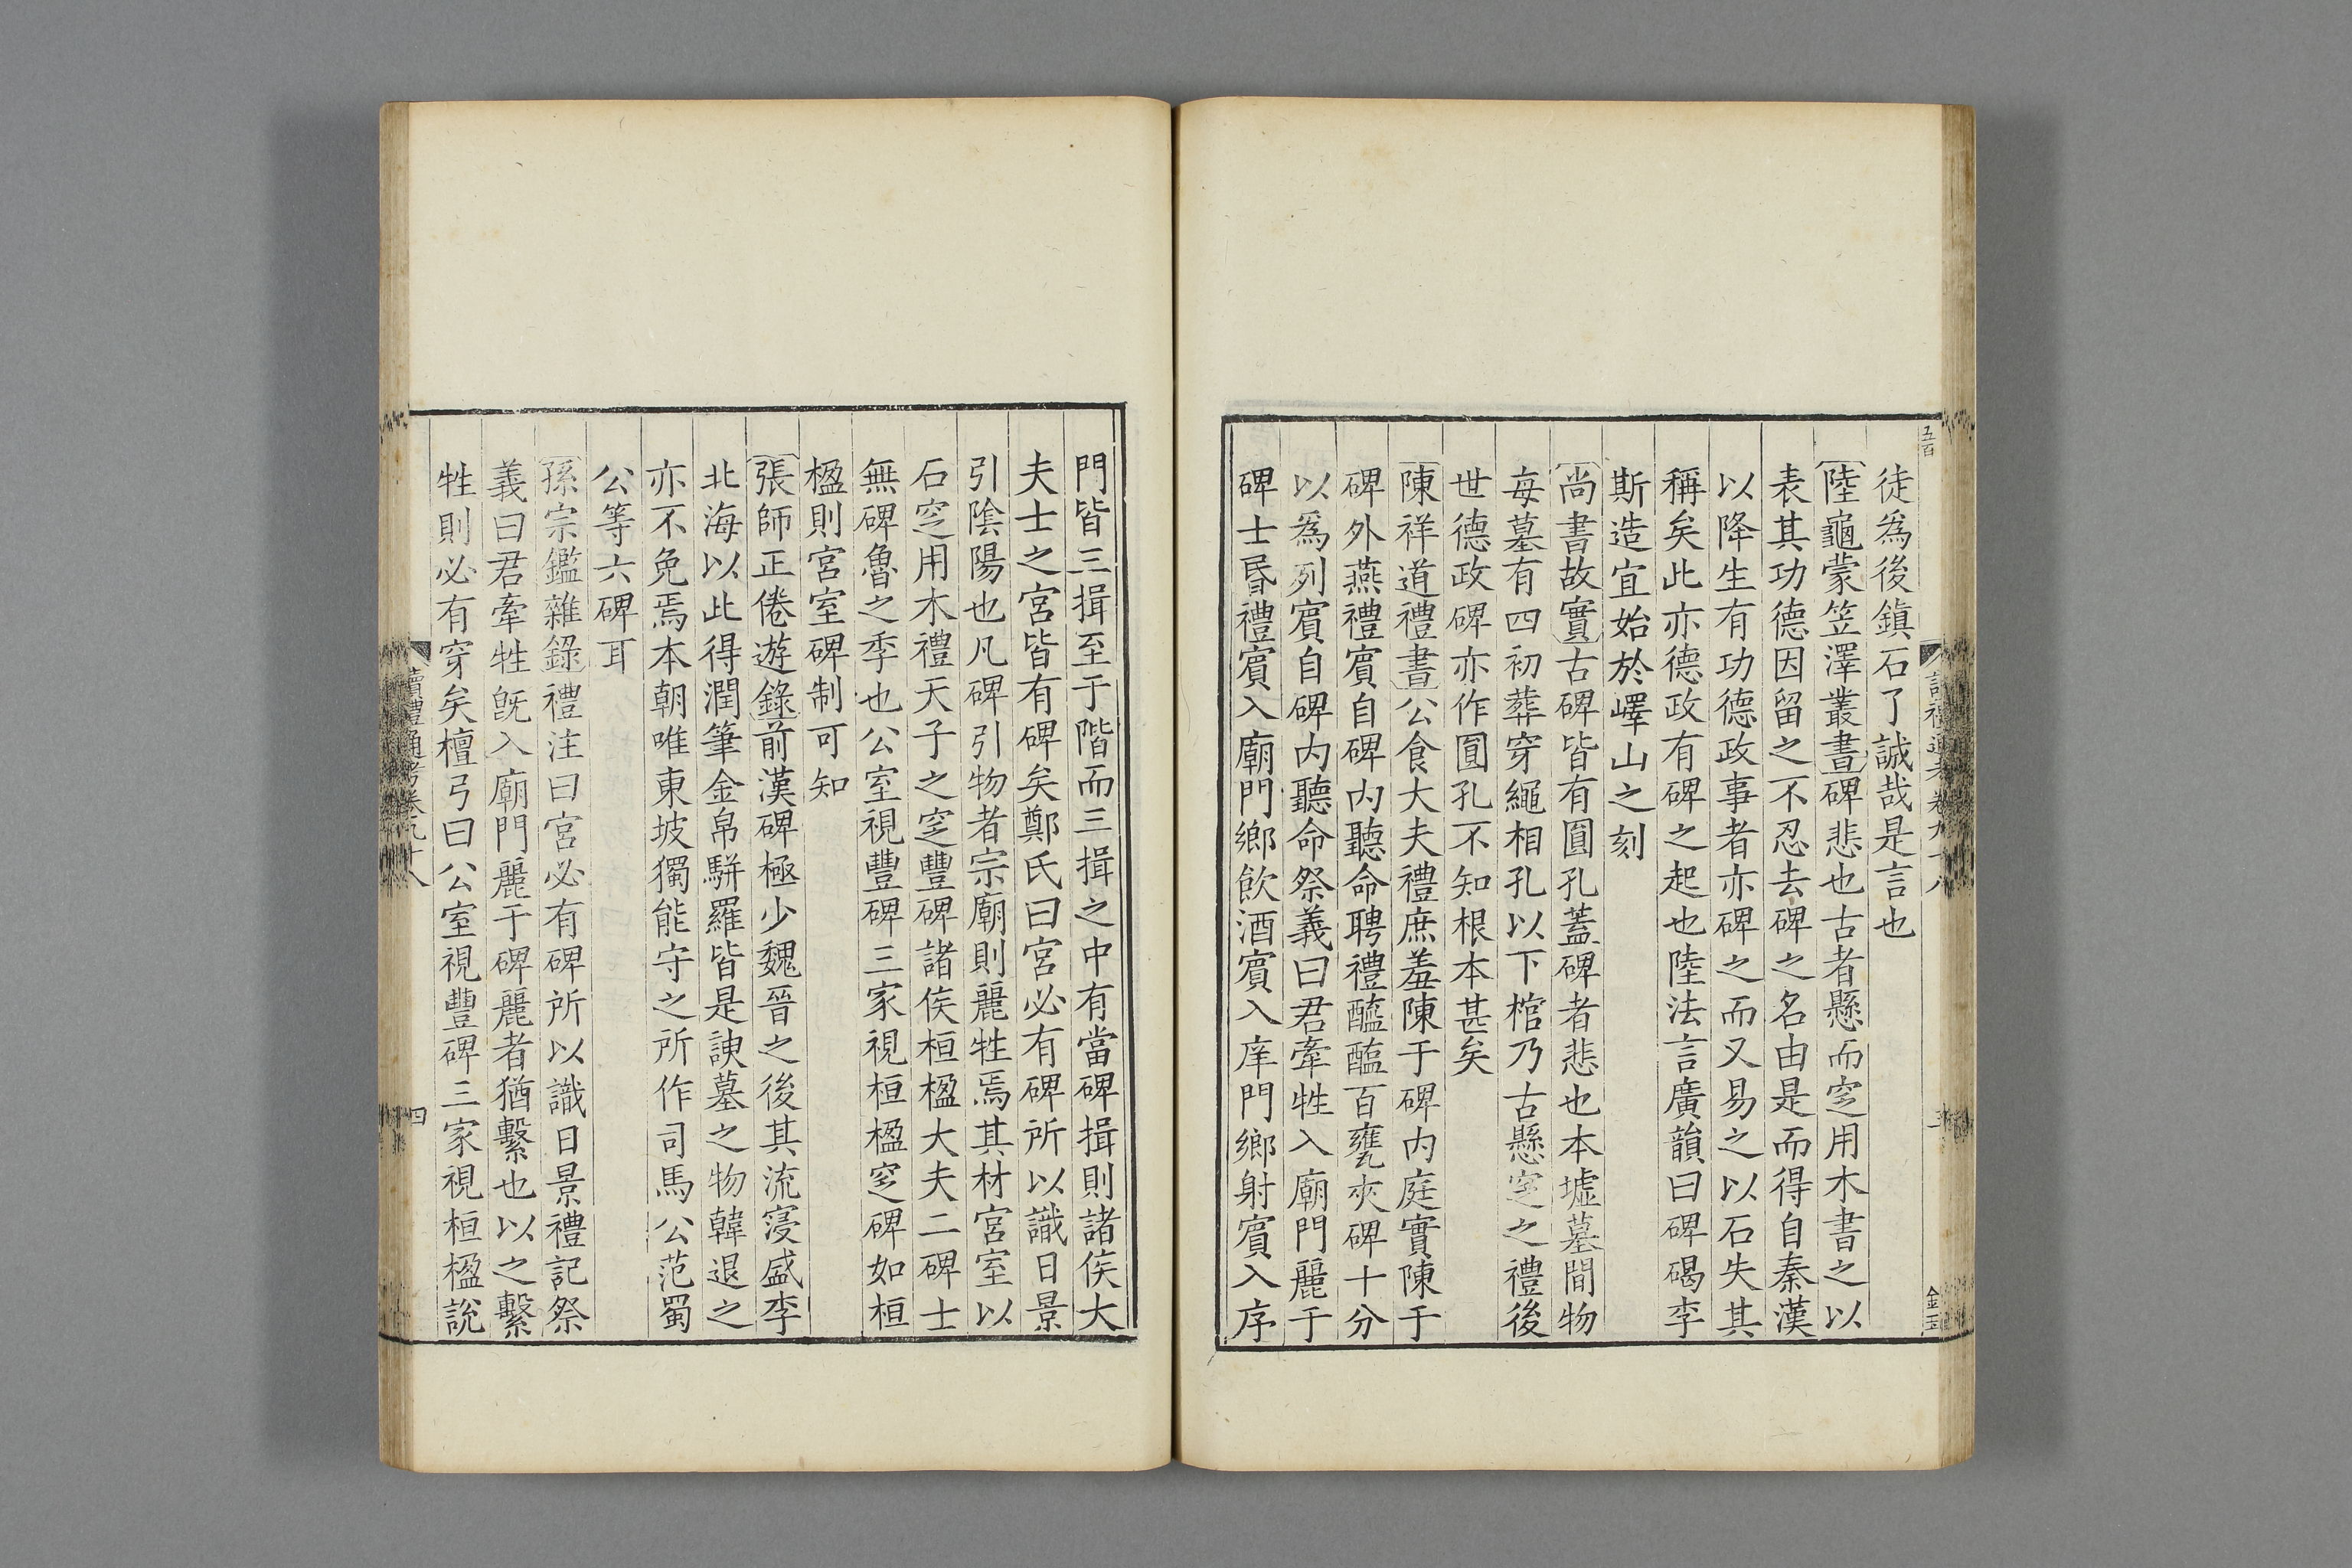 徒爲後鎮石了誠哉是言也
陸龜蒙笠澤叢書碑悲也古者懸而窆用木書之以
表其功德因留之不忍去碑之名由是而得自秦漢
以降生有功德政事者亦碑之而又易之以石失其
稱矣此亦德政有碑之起也陸法言廣韻曰碑碣李
斯造宜始於嶧山之刻
尚書故實古碑皆有圓孔蓋碑者悲也本墟墓間物
每墓有四初葬穿繩相孔以下棺乃古懸窆之禮後
世德政碑亦作圓孔不知根本甚矣
陳祥道禮書公食大夫禮庶羞陳于碑内庭實陳于
碑外燕禮賓自碑内聽命聘禮醯醢百甕夾碑十分
以爲列賓自碑内聽命祭義曰君牽牲入廟門麗于
碑士昬禮賓入廟門鄉飲酒賓入庠門鄉射賓入序
五百
金玉
門皆三揖至于階而三揖之中有當碑揖則諸侯大
夫士之宮皆有碑矣鄭氏曰宮必有碑所以識日景
引陰陽也凡碑引物者宗廟則麗牲焉其材宮室以
石窆用木禮天子之窆豐碑諸侯桓楹大夫二碑士
無碑魯之季也公室視豐碑三家視桓楹窆碑如桓
楹則宮室碑制可知
張師正倦遊錄前漢碑極少魏晉之後其流寖盛李
北海以此得潤筆金帛駢羅皆是諛墓之物韓退之
亦不免焉本朝唯東坡獨能守之所作司馬公范蜀
公等六碑耳
孫宗鑑雜錄禮注曰宮必有碑所以識日景禮記祭
義曰君牽牲旣入廟門麗于碑麗者猶繫也以之繫
牲則必有穿矣檀弓曰公室視豐碑三家視桓楹說
讀禮通考卷九十八
四